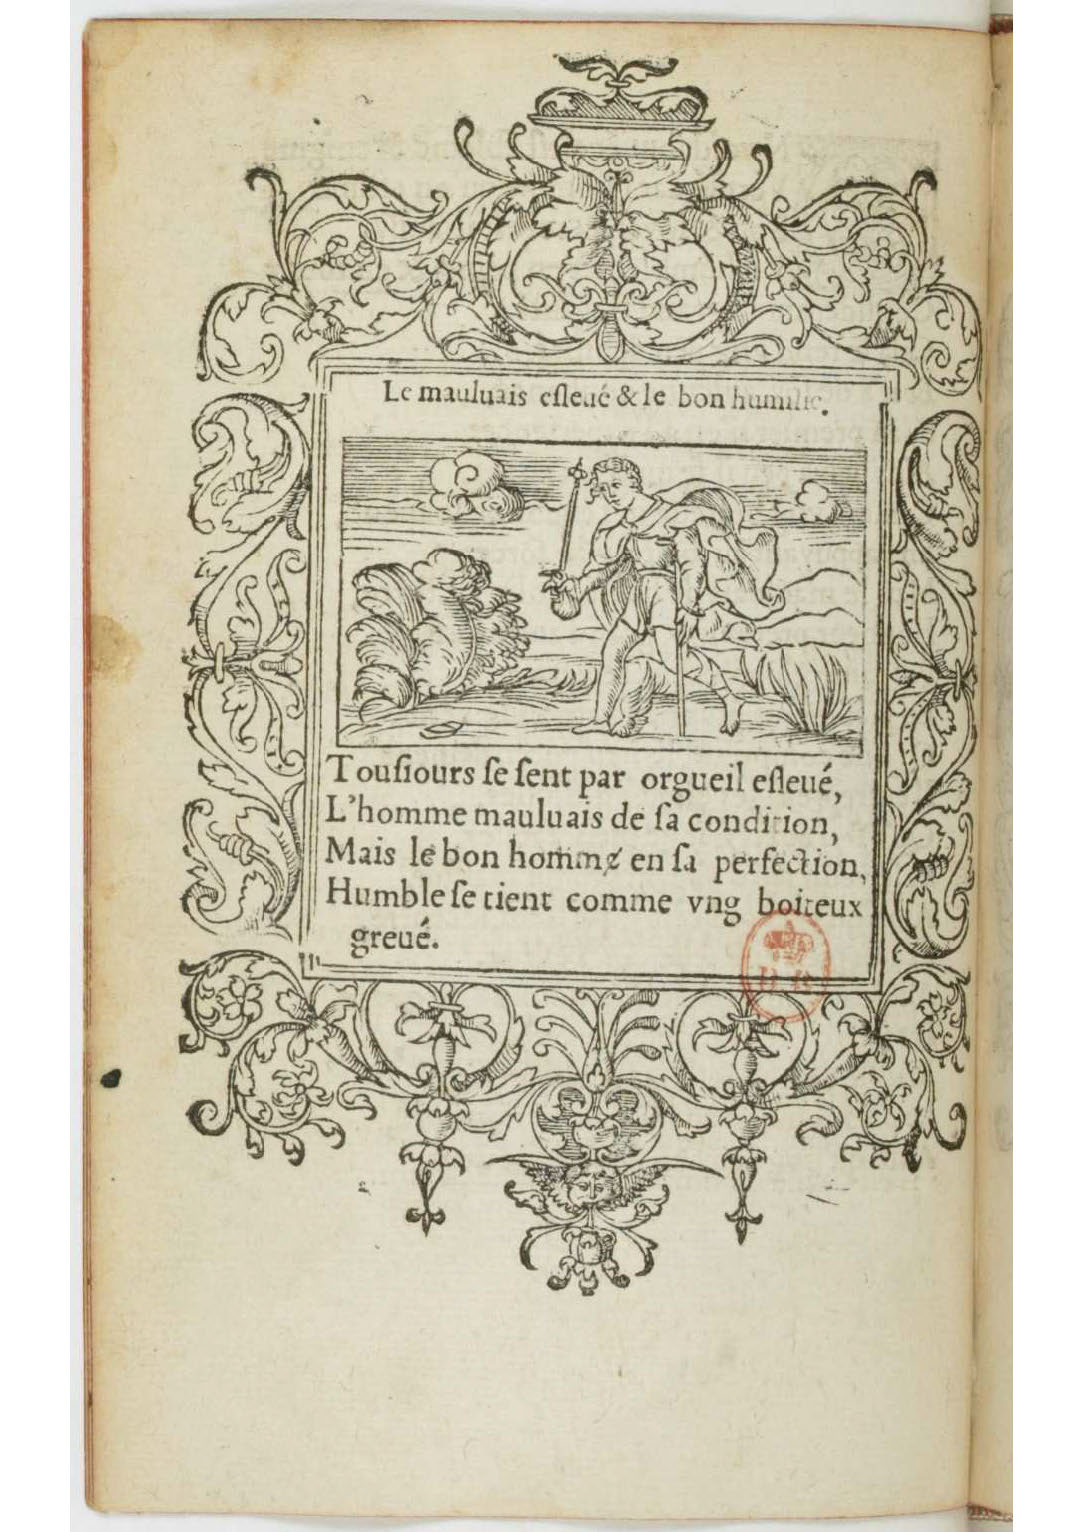 Le mauluais esleué & le bon humilie.
Tousiours se sent par orgueil esleué,
L'homme mauluais de sa condition,
Mais le bon homme en sa perfection,
Humble se tient comme vng boiteux
greué.